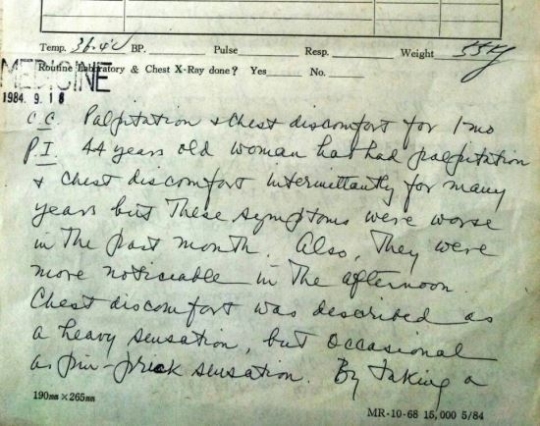 Temp. 36.4°C BP. Pulse Resp. Weight 55kg
Routine Laboratory & Chest X-Ray done? Yes No.
MEDICINE
1984. 9. 18
C.C. Palpitation & chest discomfort for 1 mo
P.I. 44 years old woman has had palpitation
& chest discomfort intermittantly for many
years but These symptoms were worse
in The past month. Also, They were
more noticeable in The afternoon
Chest discomfort was described as
a heavy sensation, but occasional
as pin-prick sensation. By taking a
190mm×265mm
MR-10-68 15,000 5/84